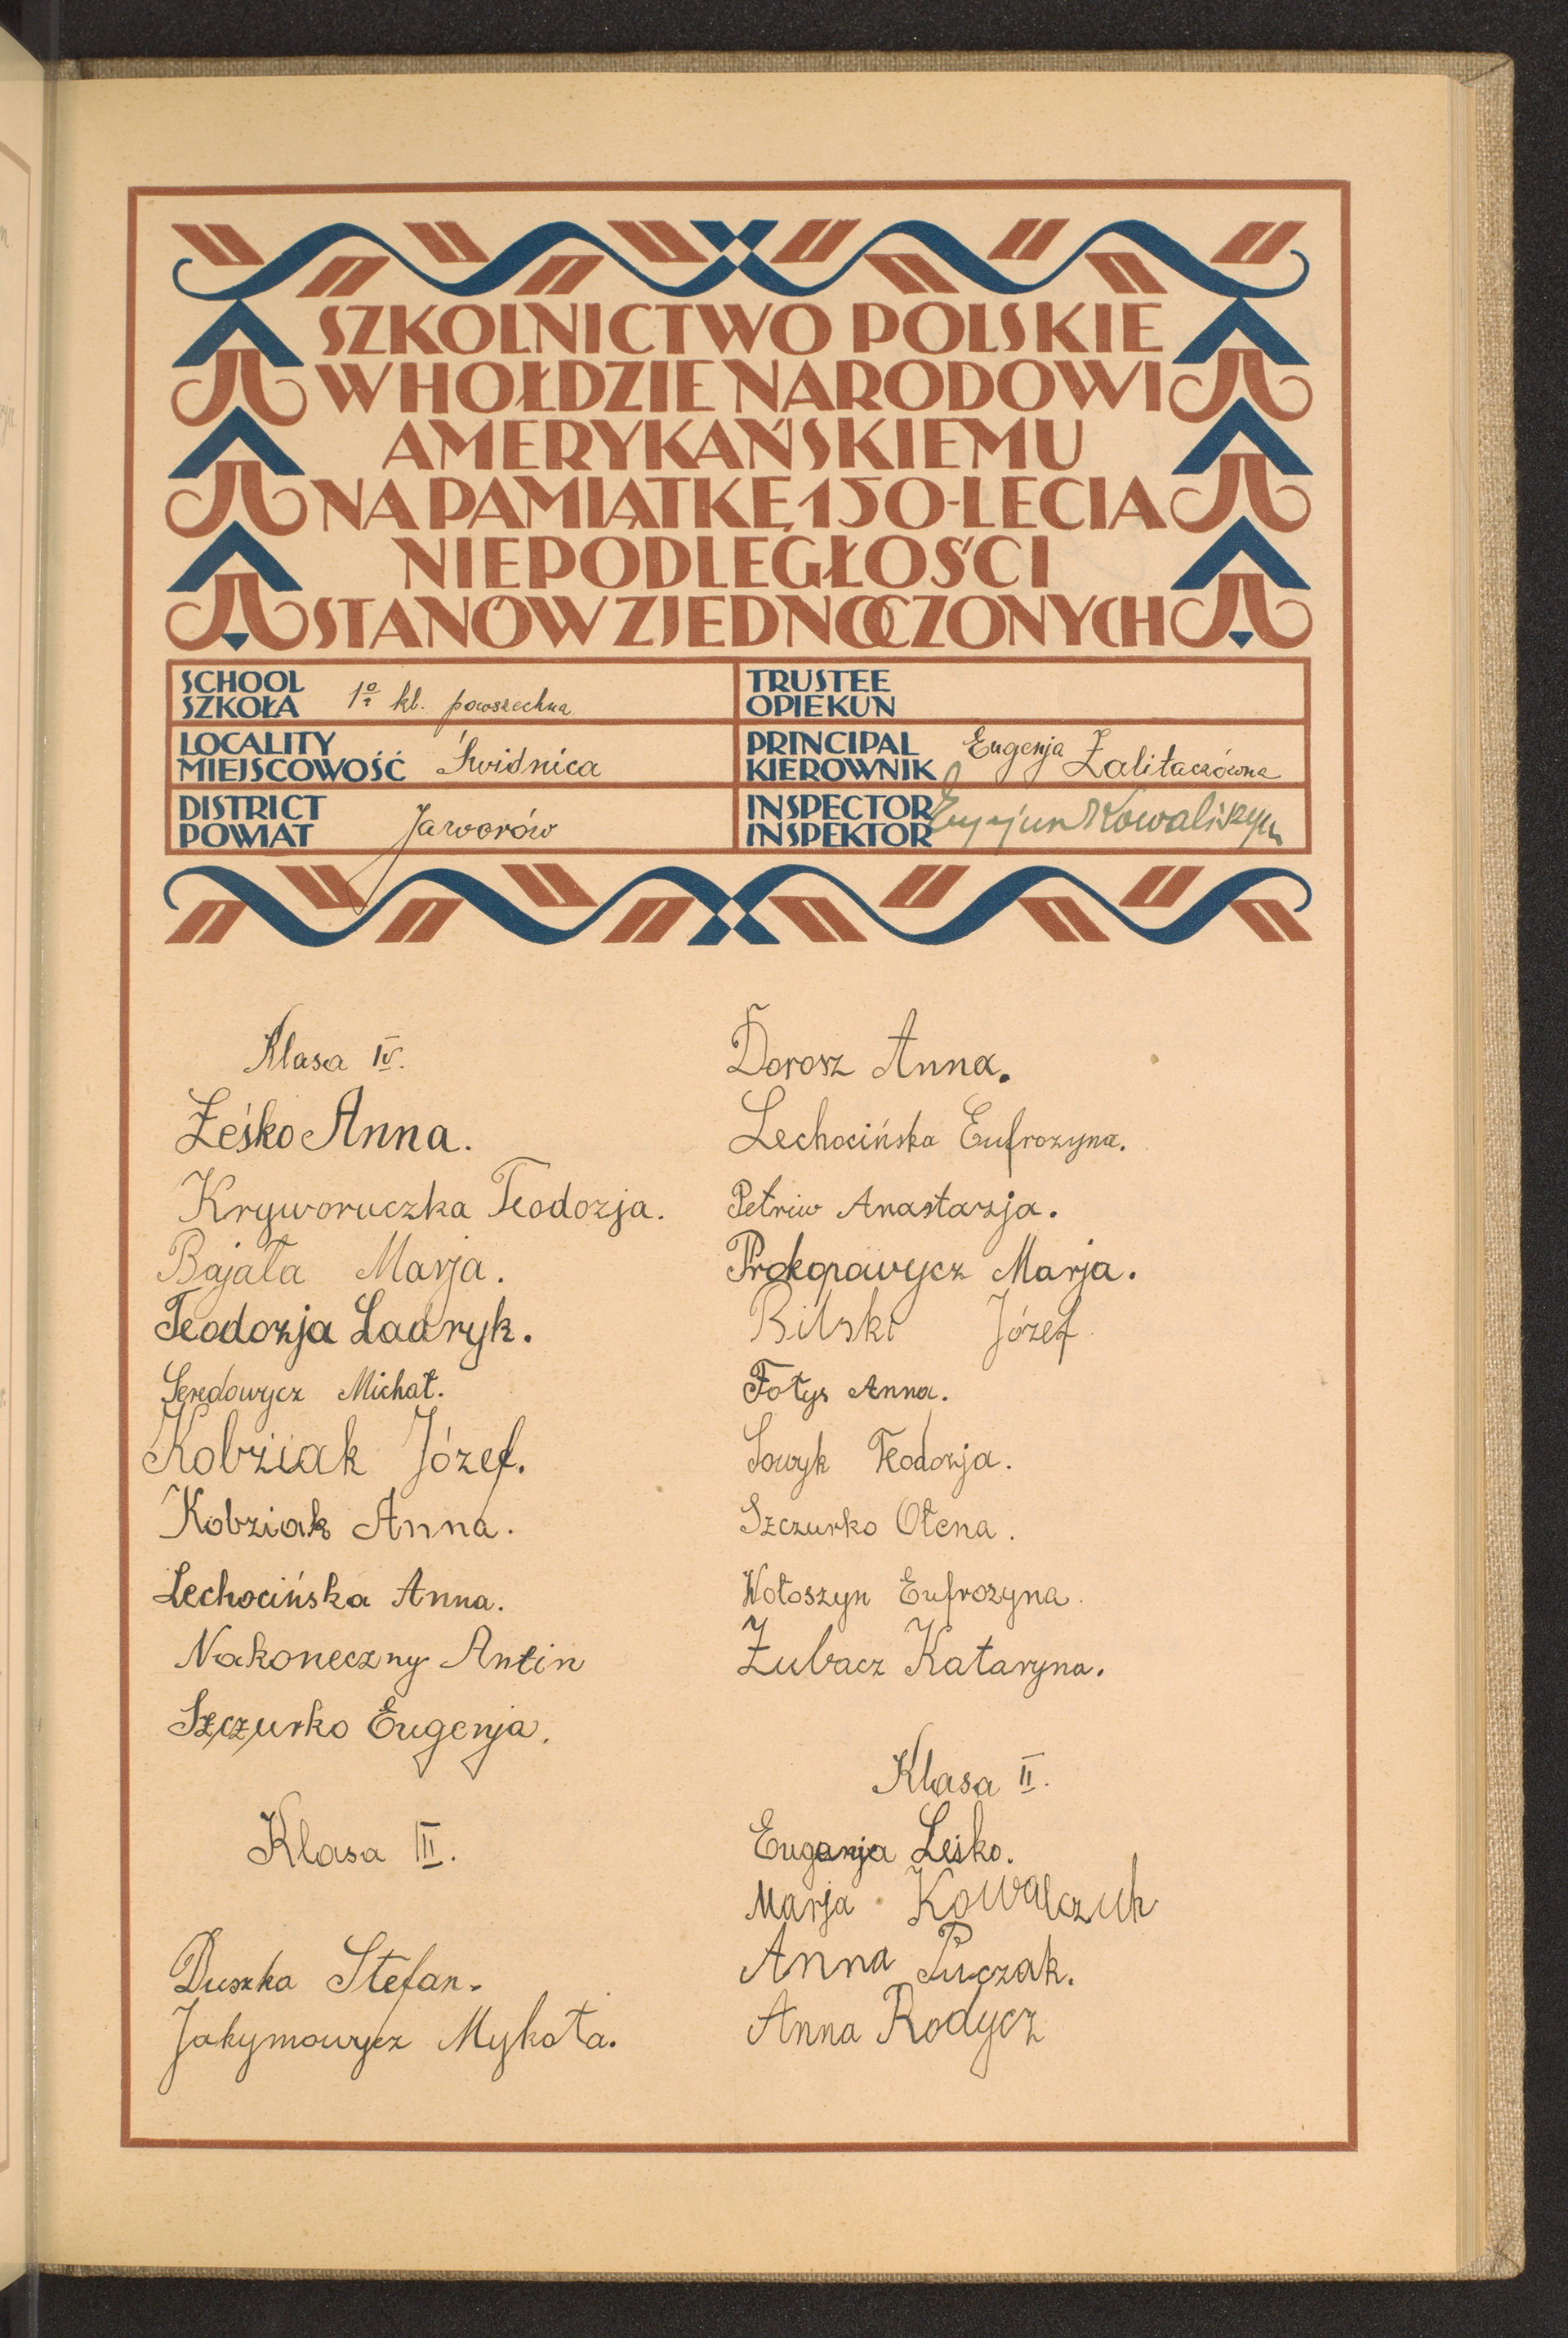 SZKOLNICTWO POLSKIE
W HOŁDZIE NARODOWI
AMERYKAŃSKIEMU
NA PAMIĄTKĘ 150-LECIA
NIEPODLEGŁOŚCI
STANÓW ZJEDNOCZONYCH
SCHOOL
SZKOŁA 1º kl. powszechna
TRUSTEE
OPIEKUN
LOCALITY
MIEJSCOWOŚĆ Świdnica
PRINCIPAL
KIEROWNIK Eugenja Zalitaczówna
DISTRICT
POWIAT Jaworów
INSPECTOR
INSPEKTOR Kowaliszyn
Klasa IV.
Leśko Anna.
Kryworuczka Teodozja.
Bajała Marja.
Teodozja Ladryk.
Seredowycz Michał.
Kobziak Józef.
Kobziak Anna.
Lechocińska Anna.
Nakoneczny Antin
Szczurko Eugenja.
Klasa III.
Duszka Stefan.
Jakymowycz Mykoła.
Dorosz Anna.
Lechocińska Eufrozyna.
Petriw Anastazja.
Prokopowycz Marja.
Bilski Józef.
Fotys Anna.
Sowyk Teodozja.
Szczurko Ołena.
Wołoszyn Eufrozyna.
Żubacz Kataryna.
Klasa II.
Eugenja Leśko.
Marja Kowalczuk
Anna Puczak.
Anna Rodycz